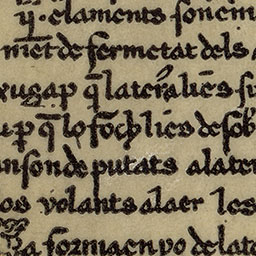 ij. elaments son em
ment de fermetat dels
xuga p q̄ la terra lies si
u p q̄ lo foch lies de sob
an son deputats a la ter
os volants al aer les
la forma en vo de lat